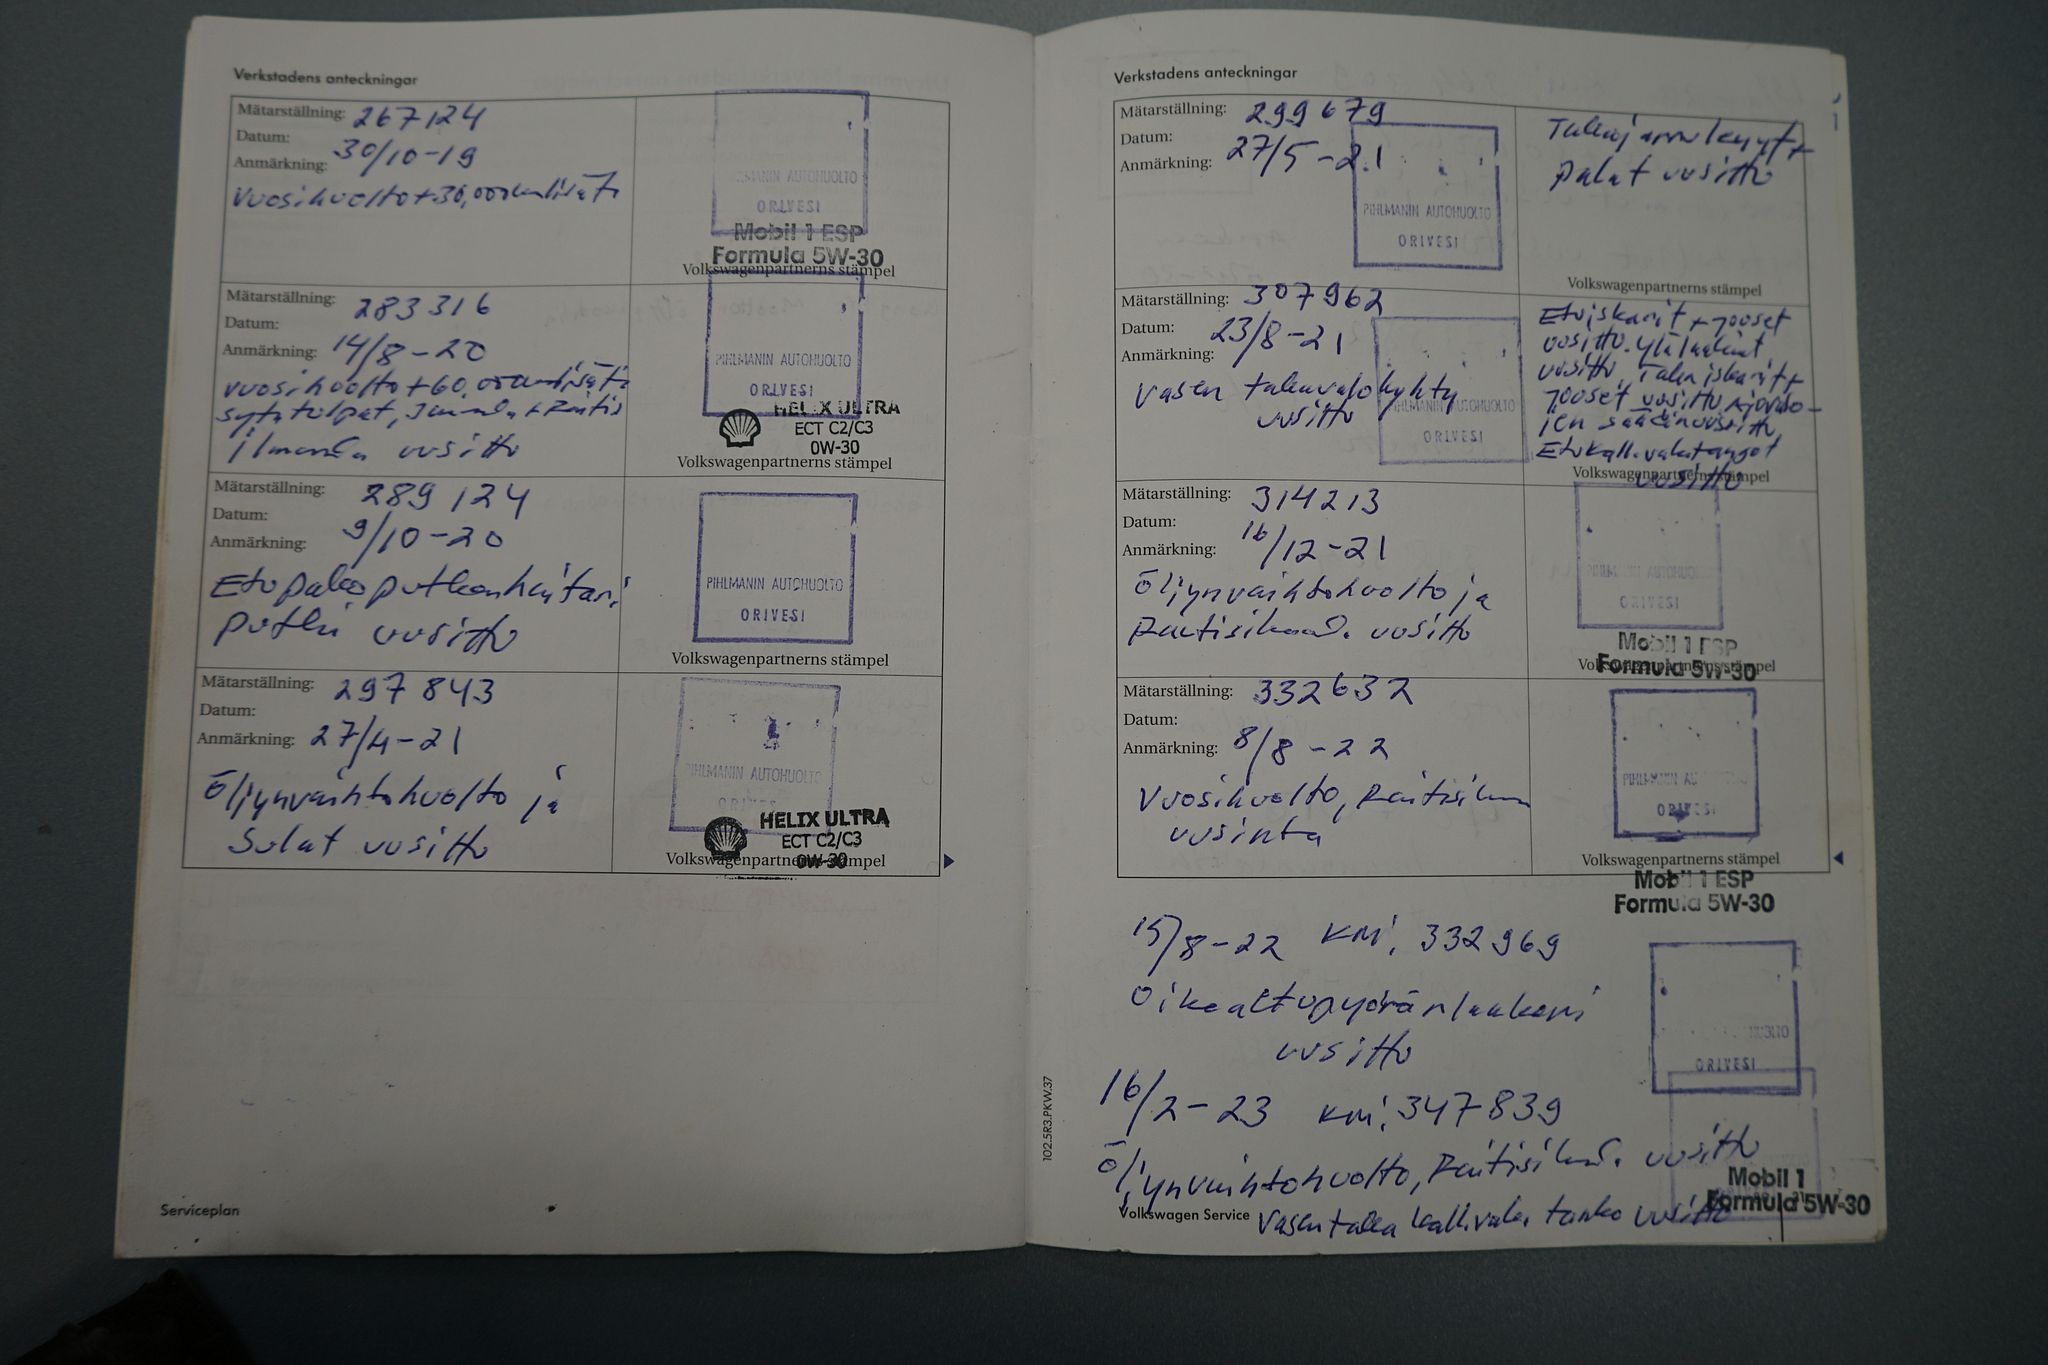 Verkstadens anteckningar
Mätarställning: 267124
Datum:
Anmärkning: 30/10-19
Vuosihuolto + 30,000
PIHLMANIN AUTOHUOLTO
ORIVESI
Mobil 1 ESP
Formula 5W-30
Volkswagenpartnerns stämpel
Mätarställning: 283316
Datum:
Anmärkning: 14/8-20
vuosihuolto + 60,000
sytytulpat, +
ilman uusittu
PIHLMANIN AUTOHUOLTO
ORIVESI
HELIX ULTRA
ECT C2/C3
0W-30
Volkswagenpartnerns stämpel
Mätarställning: 289124
Datum:
Anmärkning: 9/10-20
putki uusittu
PIHLMANIN AUTOHUOLTO
ORIVESI
Volkswagenpartnerns stämpel
Mätarställning: 297843
Datum:
Anmärkning: 27/4-21
Öljynvaihtohuolto ja
Sulat uusittu
PIHLMANIN AUTOHUOLTO
ORIVESI
HELIX ULTRA
ECT C2/C3
0W-30
Volkswagenpartnerns stämpel
Serviceplan
Verkstadens anteckningar
Mätarställning: 299679
Datum:
Anmärkning: 27/5-21
PIHLMANIN AUTOHUOLTO
ORIVESI
Takajarrulevyt +
Palat uusittu
Volkswagenpartnerns stämpel
Mätarställning: 307962
Datum: 23/8-21
Anmärkning:
Vasen takavalokyhty
uusittu
PIHLMANIN AUTOHUOLTO
ORIVESI
Etuiskarit + jouset
uusittu. Ylälaakerit
uusittu, Takaiskarit +
jouset uusittu Ajovalo-
jen säädin uusittu
Etukall.vakatangot
uusittu
Volkswagenpartnerns stämpel
Mätarställning: 314213
Datum:
Anmärkning: 16/12-21
Öljynvaihtohuolto ja
uusittu
PIHLMANIN AUTOHUOLTO
ORIVESI
Mobil 1 ESP
Formula 5W-30
Volkswagenpartnerns stämpel
Mätarställning: 332632
Datum:
Anmärkning: 8/8-22
Vuosihuolto,
uusinta
PIHLMANIN AUTOHUOLTO
ORIVESI
Volkswagenpartnerns stämpel
Mobil 1 ESP
Formula 5W-30
15/8-22 KM: 332969
Oikea etupyöränlaakeri
uusittu
ORIVESI
16/2-23 KM: 347839
Öljynvaihtohuolto, uusittu
Vasen taka kall.vaka tanko uusittu
Mobil 1
Formula 5W-30
Volkswagen Service
102.5R3.PKW.37